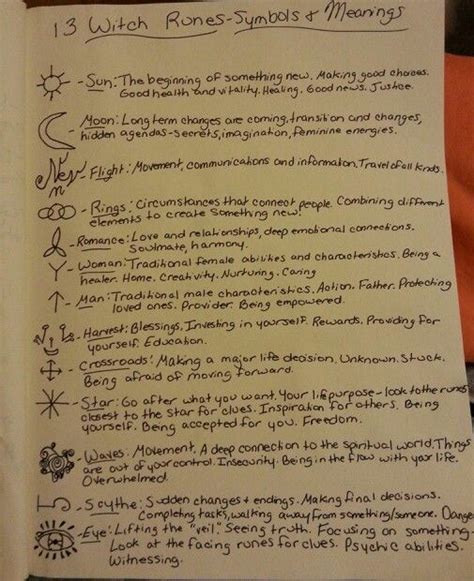 13 Witch Runes-Symbols & Meanings
-Sun: The beginning of something new. Making good choices.
Good health and vitality. Healing. Good news. Justice.
-Moon: Long term changes are coming, transition and changes,
hidden agendas-secrets, imagination, feminine energies.
-Flight: Movement, communications and information. Travel of all kinds.
-Rings: Circumstances that connect people. Combining different
elements to create something new.
-Romance: Love and relationships, deep emotional connections.
Soulmate, harmony.
-Woman: Traditional female abilities and characteristics. Being a
healer. Home. Creativity. Nurturing. Caring
-Man: Traditional male characteristics. Action. Father. Protecting
loved ones. Provider. Being empowered.
-Harvest: Blessings. Investing in yourself. Rewards. Providing for
yourself. Education.
-Crossroads: Making a major life decision. Unknown. Stuck.
Being afraid of moving forward.
-Star: Go after what you want. Your life purpose-look to the runes
closest to the Star for clues. Inspiration for others. Being
yourself. Being accepted for you. Freedom.
-Waves: Movement, A deep connection to the spiritual world. Things
are out of your control. Insecurity. Being in the flow with your life.
Overwhelmed.
-Scythe: Sudden changes & endings. Making final decisions.
Completing tasks, walking away from something/someone. Danger
-Eye: Lifting the "veil". Seeing truth. Focusing on something-
Look at the facing runes for clues. Psychic abilities.
Witnessing.